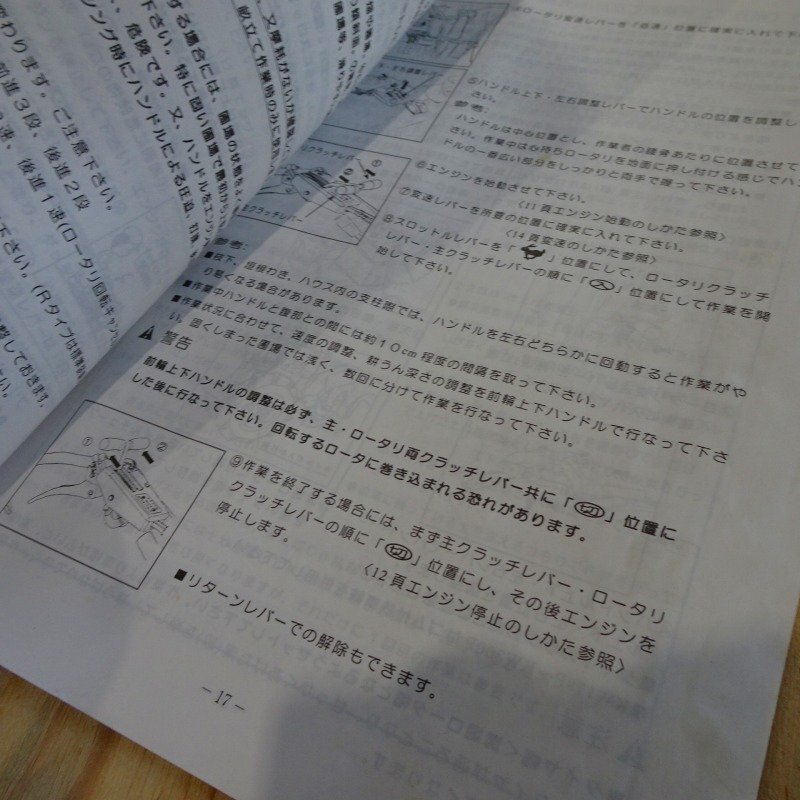 ロータリ変速レバーを「必速」位置に確実に入れて下
⑤ハンドル上下・左右調整レバーでハンドルの位置を調整し
さい。
参考:
ハンドルは中心位置とし、作業者の腰骨あたりに位置させて
さい。作業中は心持ちロータリを地面に押し付ける感じでハン
ドルの一番広い部分をしっかりと両手で握って下さい。
⑥エンジンを始動させて下さい。
〈11頁エンジン始動のしかた参照〉
⑦変速レバーを所要の位置に確実に入れて下さい。
〈14頁変速のしかた参照〉
⑧スロットルレバーを「 」位置にして、ロータリクラッチ
レバー・主クラッチレバーの順に「入」位置にして作業を開
始して下さい。
参考:
■畝下、垣根わき、ハウス内の支柱際では、ハンドルを左右どちらかに回動すると作業がや
り易くなる場合があります。
■作業中ハンドルと腹部との間には約10cm程度の間隔を取って下さい。
■作業状況に合わせて、速度の調整、耕うん深さの調整を前輪上下ハンドルで行なって下さ
い。固くしまった圃場では浅く、数回に分けて作業を行なって下さい。
警告
前輪上下ハンドルの調整は必ず、主・ロータリ両クラッチレバー共に「切」位置に
した後に行なって下さい。回転するロータに巻き込まれる恐れがあります。
① ②
⑨作業を終了する場合には、まず主クラッチレバー・ロータリ
クラッチレバーの順に「切」位置にし、その後エンジンを
停止します。
〈12頁エンジン停止のしかた参照〉
■リターンレバーでの解除もできます。
－17－
クラッチレバー
①
主クラッチレバー
する場合には、圃場の状態をよ
、危険です。又、ハンドルをエンジン
ング時にハンドルによる圧迫、打撲、
変わります。ご注意下さい。
前進3段、後進2段
後進1速(ロータリ回転キャン
下さい。(Rタイプは標準
整しておきます
さい。